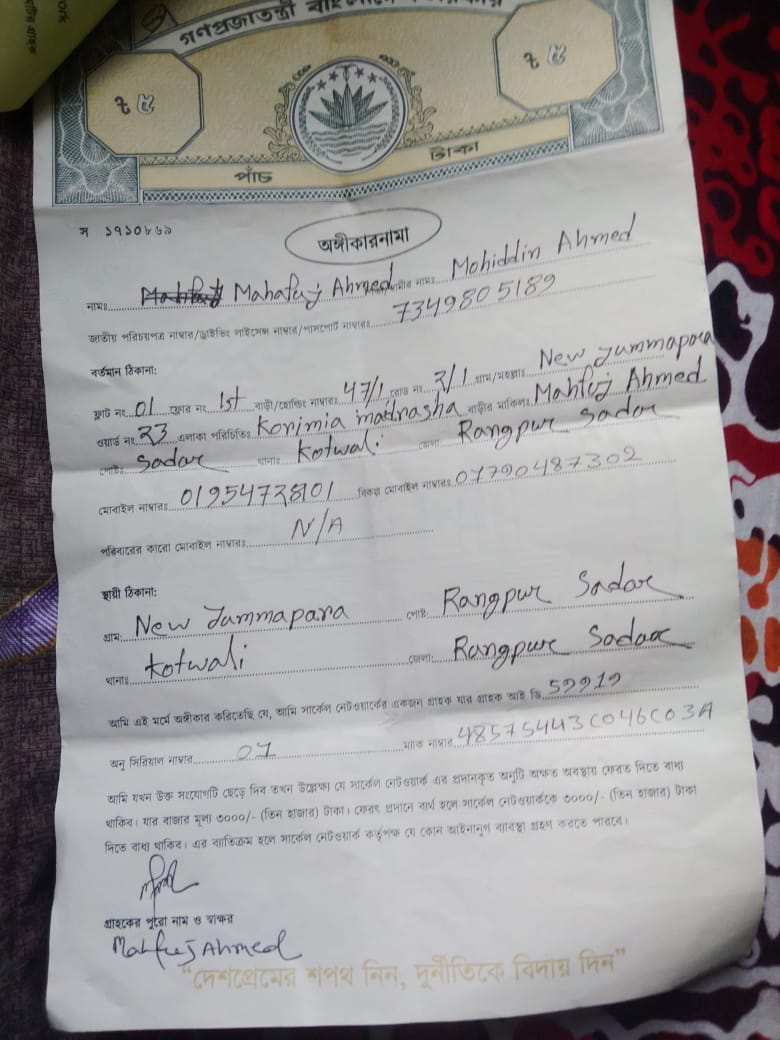 work
গণপ্রজাতন্ত্রী বাংলাদেশ
৳ ৫
৳ ৫
পাঁচ টাকা
স ১৭১০৮৬৯
অঙ্গীকারনামা
নামঃ Mahafuj Ahmed নামঃ Mohiddin Ahmed
জাতীয় পরিচয়পত্র নাম্বার/ড্রাইভিং লাইসেন্স নাম্বার/পাসপোর্ট নাম্বারঃ 7349805189
বর্তমান ঠিকানা:
ফ্লাট নং 01 ফ্লোর নং 1st বাড়ী/হোল্ডিং নাম্বারঃ 47/1 রোড নং 2/1 গ্রাম/মহল্লাঃ New Jummapara
ওয়ার্ড নং 23 এলাকা পরিচিতিঃ Korimia madrasha বাড়ীর মালিকঃ Mahfuj Ahmed
পোষ্টঃ Sador থানাঃ Kotwali জেলাঃ Rangpur Sador
মোবাইল নাম্বারঃ বিকল্প মোবাইল নাম্বারঃ 01790487302
পরিবারের কারো মোবাইল নাম্বারঃ N/A
স্থায়ী ঠিকানা:
গ্রাম: New Jummapara পোষ্ট: Rangpur Sador
থানাঃ Kotwali জেলা: Rangpur Sador
আমি এই মর্মে অঙ্গীকার করিতেছি যে, আমি সার্কেল নেটওয়ার্কের একজন গ্রাহক যার গ্রাহক আই ডি 59919
অনু সিরিয়াল নাম্বার 07 ম্যাক নাম্বার 48575443C046C03A
আমি যখন উক্ত সংযোগটি ছেড়ে দিব তখন উল্লেক্ষ্য যে সার্কেল নেটওয়ার্ক এর প্রদানকৃত অনুটি অক্ষত অবস্থায় ফেরত দিতে বাধ্য
থাকিব। যার বাজার মূল্য ৩০০০/- (তিন হাজার) টাকা। ফেরৎ প্রদানে ব্যর্থ হলে সার্কেল নেটওয়ার্ককে ৩০০০/- (তিন হাজার) টাকা
দিতে বাধ্য থাকিব। এর ব্যতিক্রম হলে সার্কেল নেটওয়ার্ক কর্তৃপক্ষ যে কোন আইনানুগ ব্যবস্থা গ্রহণ করতে পারবে।
গ্রাহকের পুরো নাম ও স্বাক্ষর
Mahfuj Ahmed
"দেশপ্রেমের শপথ নিন, দুর্নীতিকে বিদায় দিন"